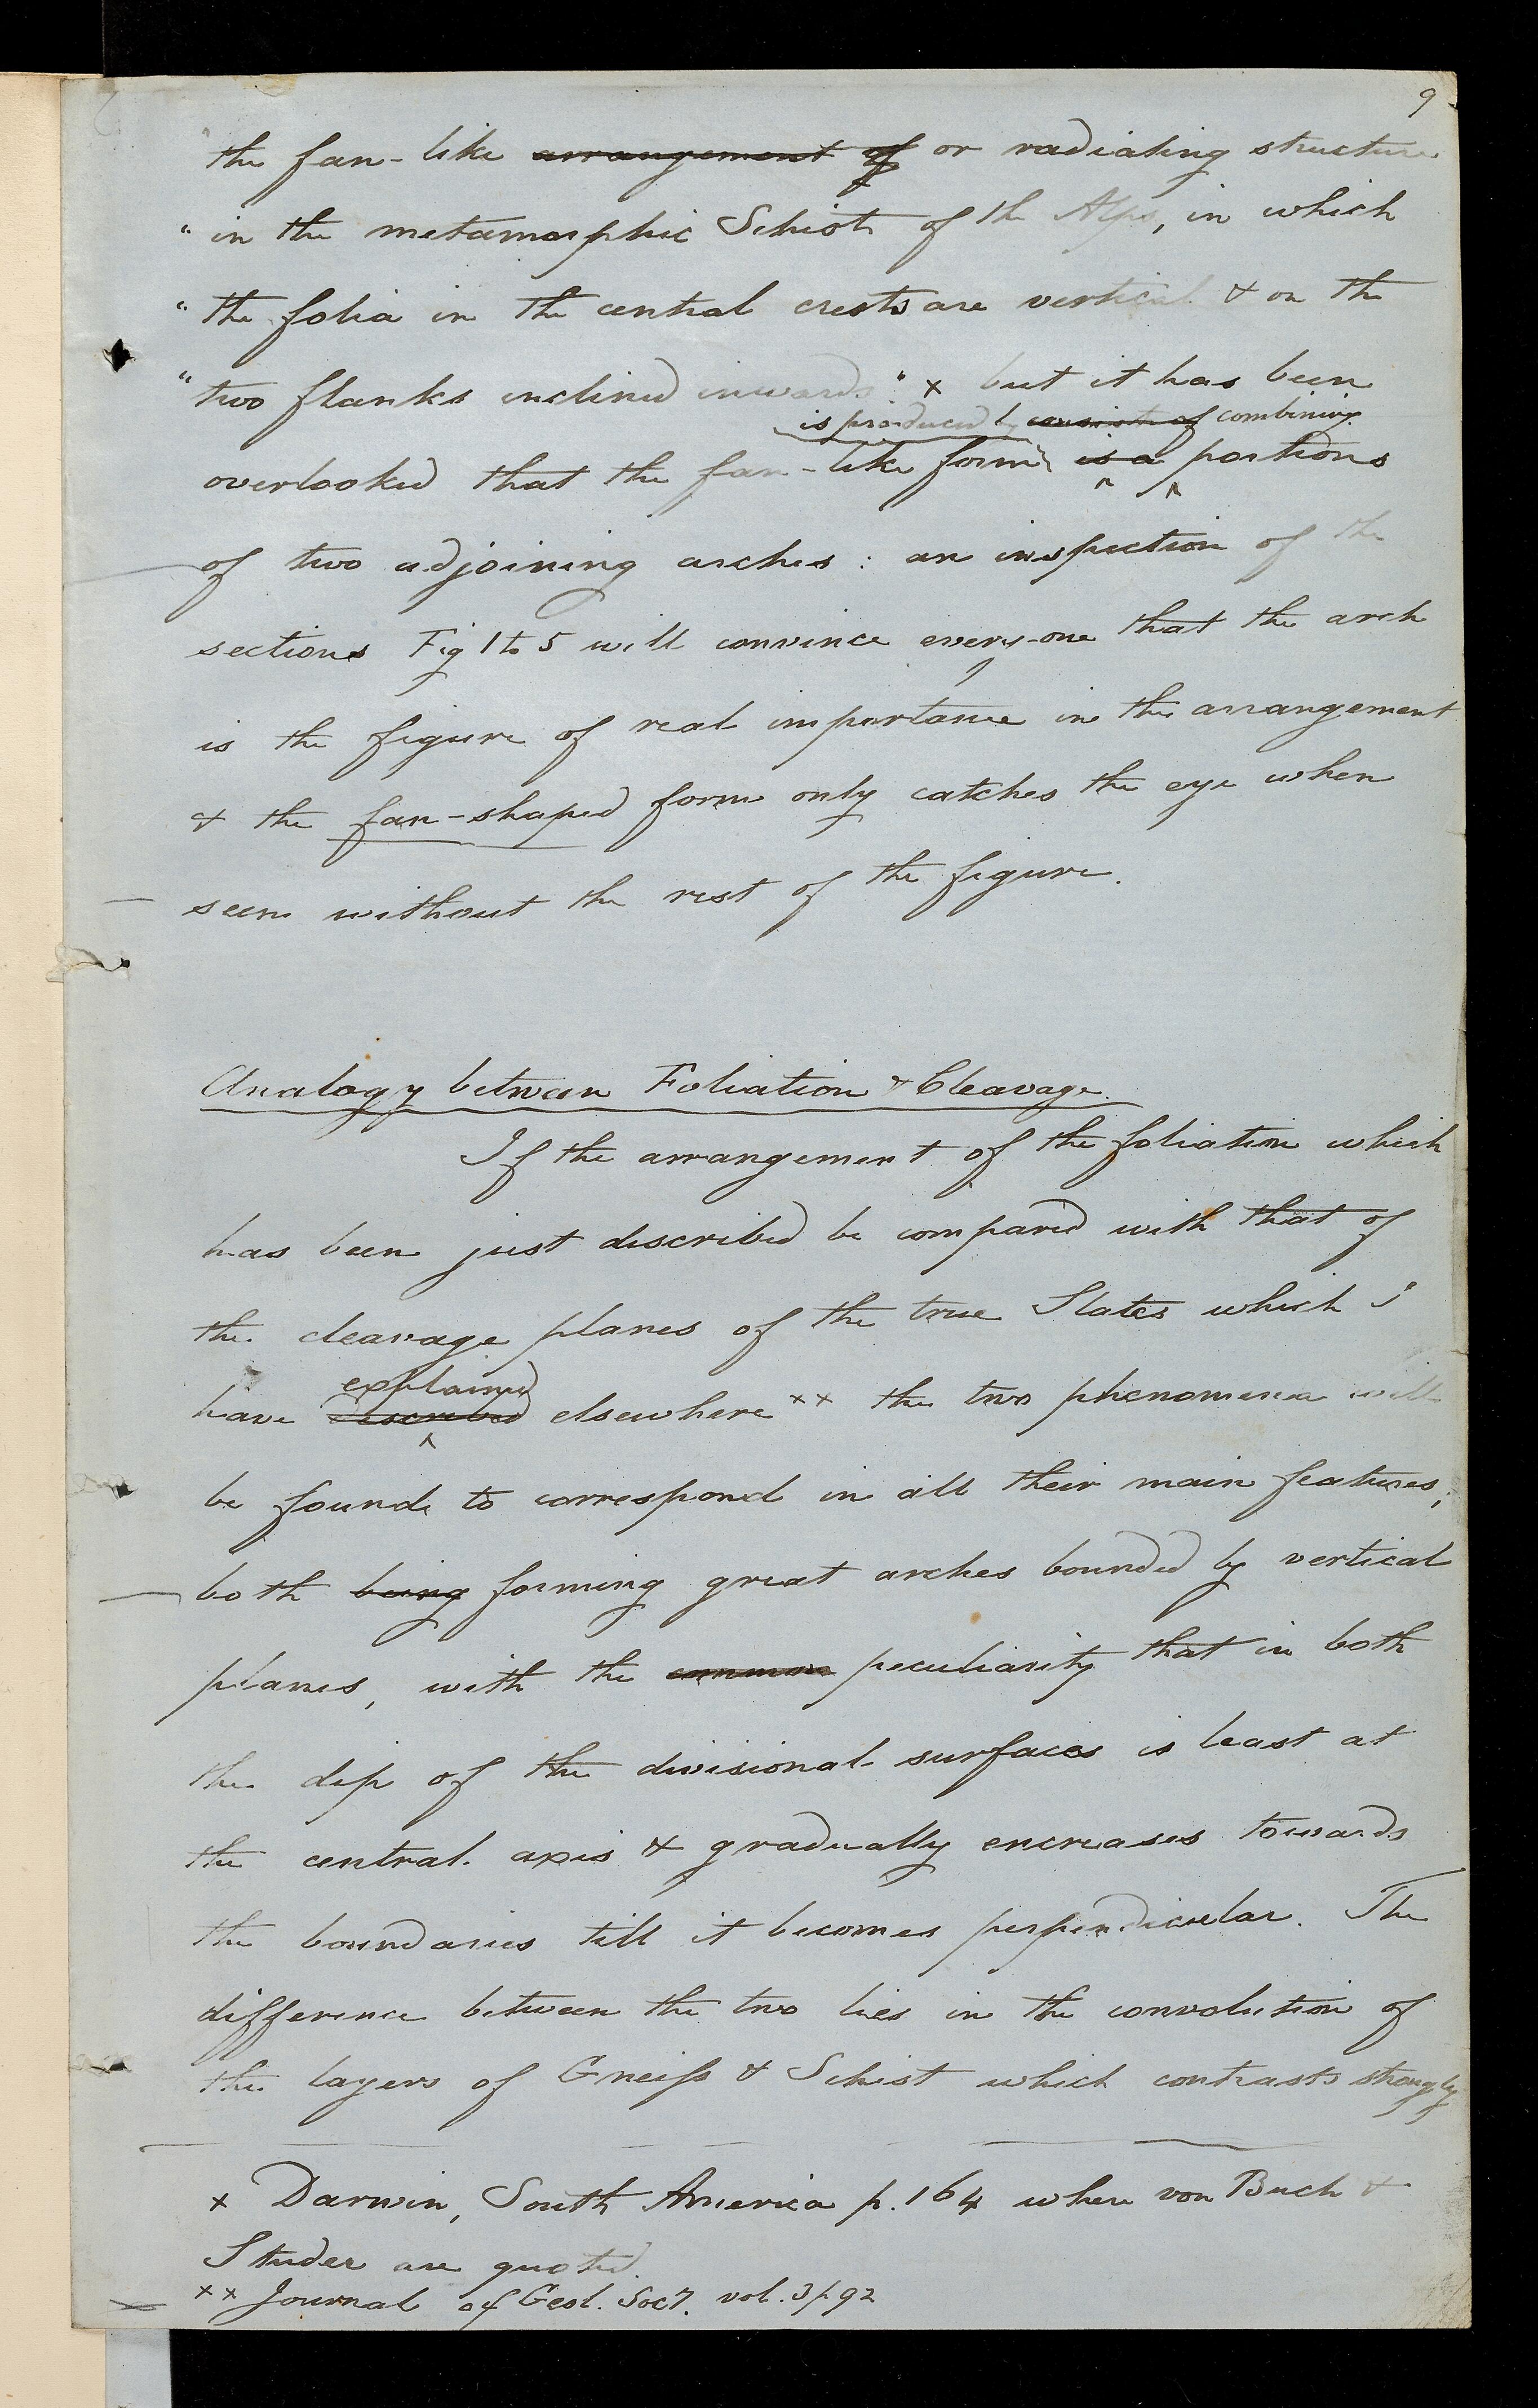 9
the fan-like arrangement of or radiating structure
" in the metamorphic Schist of the Alps, in which
" the folia in the central crests are vertical & on the
" two flanks inclined inwards" x but it has been
is produced by consists of combining
overlooked that the fan-like form is a portions
of two adjoining arches: an inspection of the
sections Fig 1 to 5 will convince every-one that the arch
is the figure of real importance in the arrangement
& the fan-shaped form only catches the eye when
seen without the rest of the figure.
Analogy between Foliation & Cleavage.
If the arrangement of the foliation which
has been just described be compared with that of
the cleavage planes of the true Slates which I
explained
have described elsewhere xx the two phenomena will
be found to correspond in all their main features,
both being forming great arches bounded by vertical
planes, with the common peculiarity that in both
the dip of the divisional surfaces is least at
the central axis & gradually encreases towards
the boundaries till it becomes perpendicular. The
difference between the two lies in the convolution of
the layers of Gneiſs & Schist which contrasts strongly
x Darwin, South America p. 164 where von Buch &
Studer are quoted.
xx Journal of Geol. Socy. vol. 3 p 92